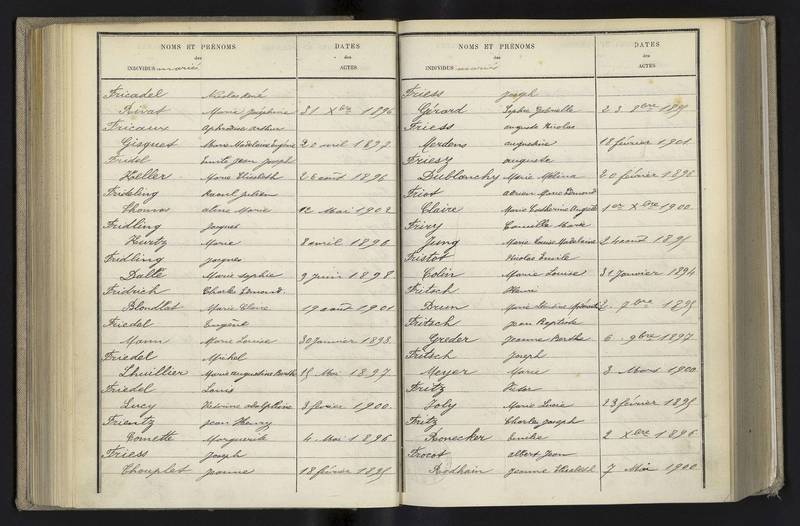 NOMS ET PRÉNOMS
des
INDIVIDUS mariés
DATES
des
ACTES
Fricadel Nicolas
Rivat Marie Joséphine 31 Xbre 1896
Fricaux Arthur
Gisquet Marie Madeleine Eugénie avril 1897
Fridel Emile Jean Joseph
Heller Marie Elisabeth 26 août 1896
Frideling Raoul Julien
Thomas aline Marie 12 Mai 1902
Fridling Jacques
Kurtz Marie 8 avril 1890
Fridling Jacques
Dallé Marie Sophie 9 juin 1898
Fridrich Charles Edmond
Blondlot Marie Claire 19 août 1901
Friedel Eugène
Mann Marie Louise 30 Janvier 1893
Friedel Michel
Lhuillier Marie Augustine Berthe 15 Mai 1897
Friedel Louis
Lucy Victorine adolphine 3 février 1900
Frientz Jean Henry
Comette Marguerite 4 Mai 1896
Friess Joseph
Chouplet Jeanne 18 février 1895
NOMS ET PRÉNOMS
des
INDIVIDUS mariés
DATES
des
ACTES
Friess Joseph
Gérard Sophie Gabrielle 23 8bre 1895
Friess auguste Nicolas
Merdens augustine 18 février 1901
Friesz auguste
Dublanchy Marie Mélina 20 février 1896
Friot adrien Marie Edmond
Claire Marie Catherine Auguste 1er Xbre 1900
Friry Camille
Jung Marie Louise Madelaine 24 août 1895
Fristot Nicolas Emile
Colin Marie Louise 31 Janvier 1894
Fritsch Henri
Drum Marie 9bre 1895
Fritsch Jean Baptiste
Greder Jeanne Berthe 6 9bre 1897
Fritsch Joseph
Meyer Marie 3 Mars 1900
Fritz Victor
Joly Marie Lucie 23 février 1895
Fritz Charles Joseph
Konecker Emilie 2 Xbre 1896
Frocot albert Jean
Rodhain Jeanne Elisabeth 7 Mai 1900